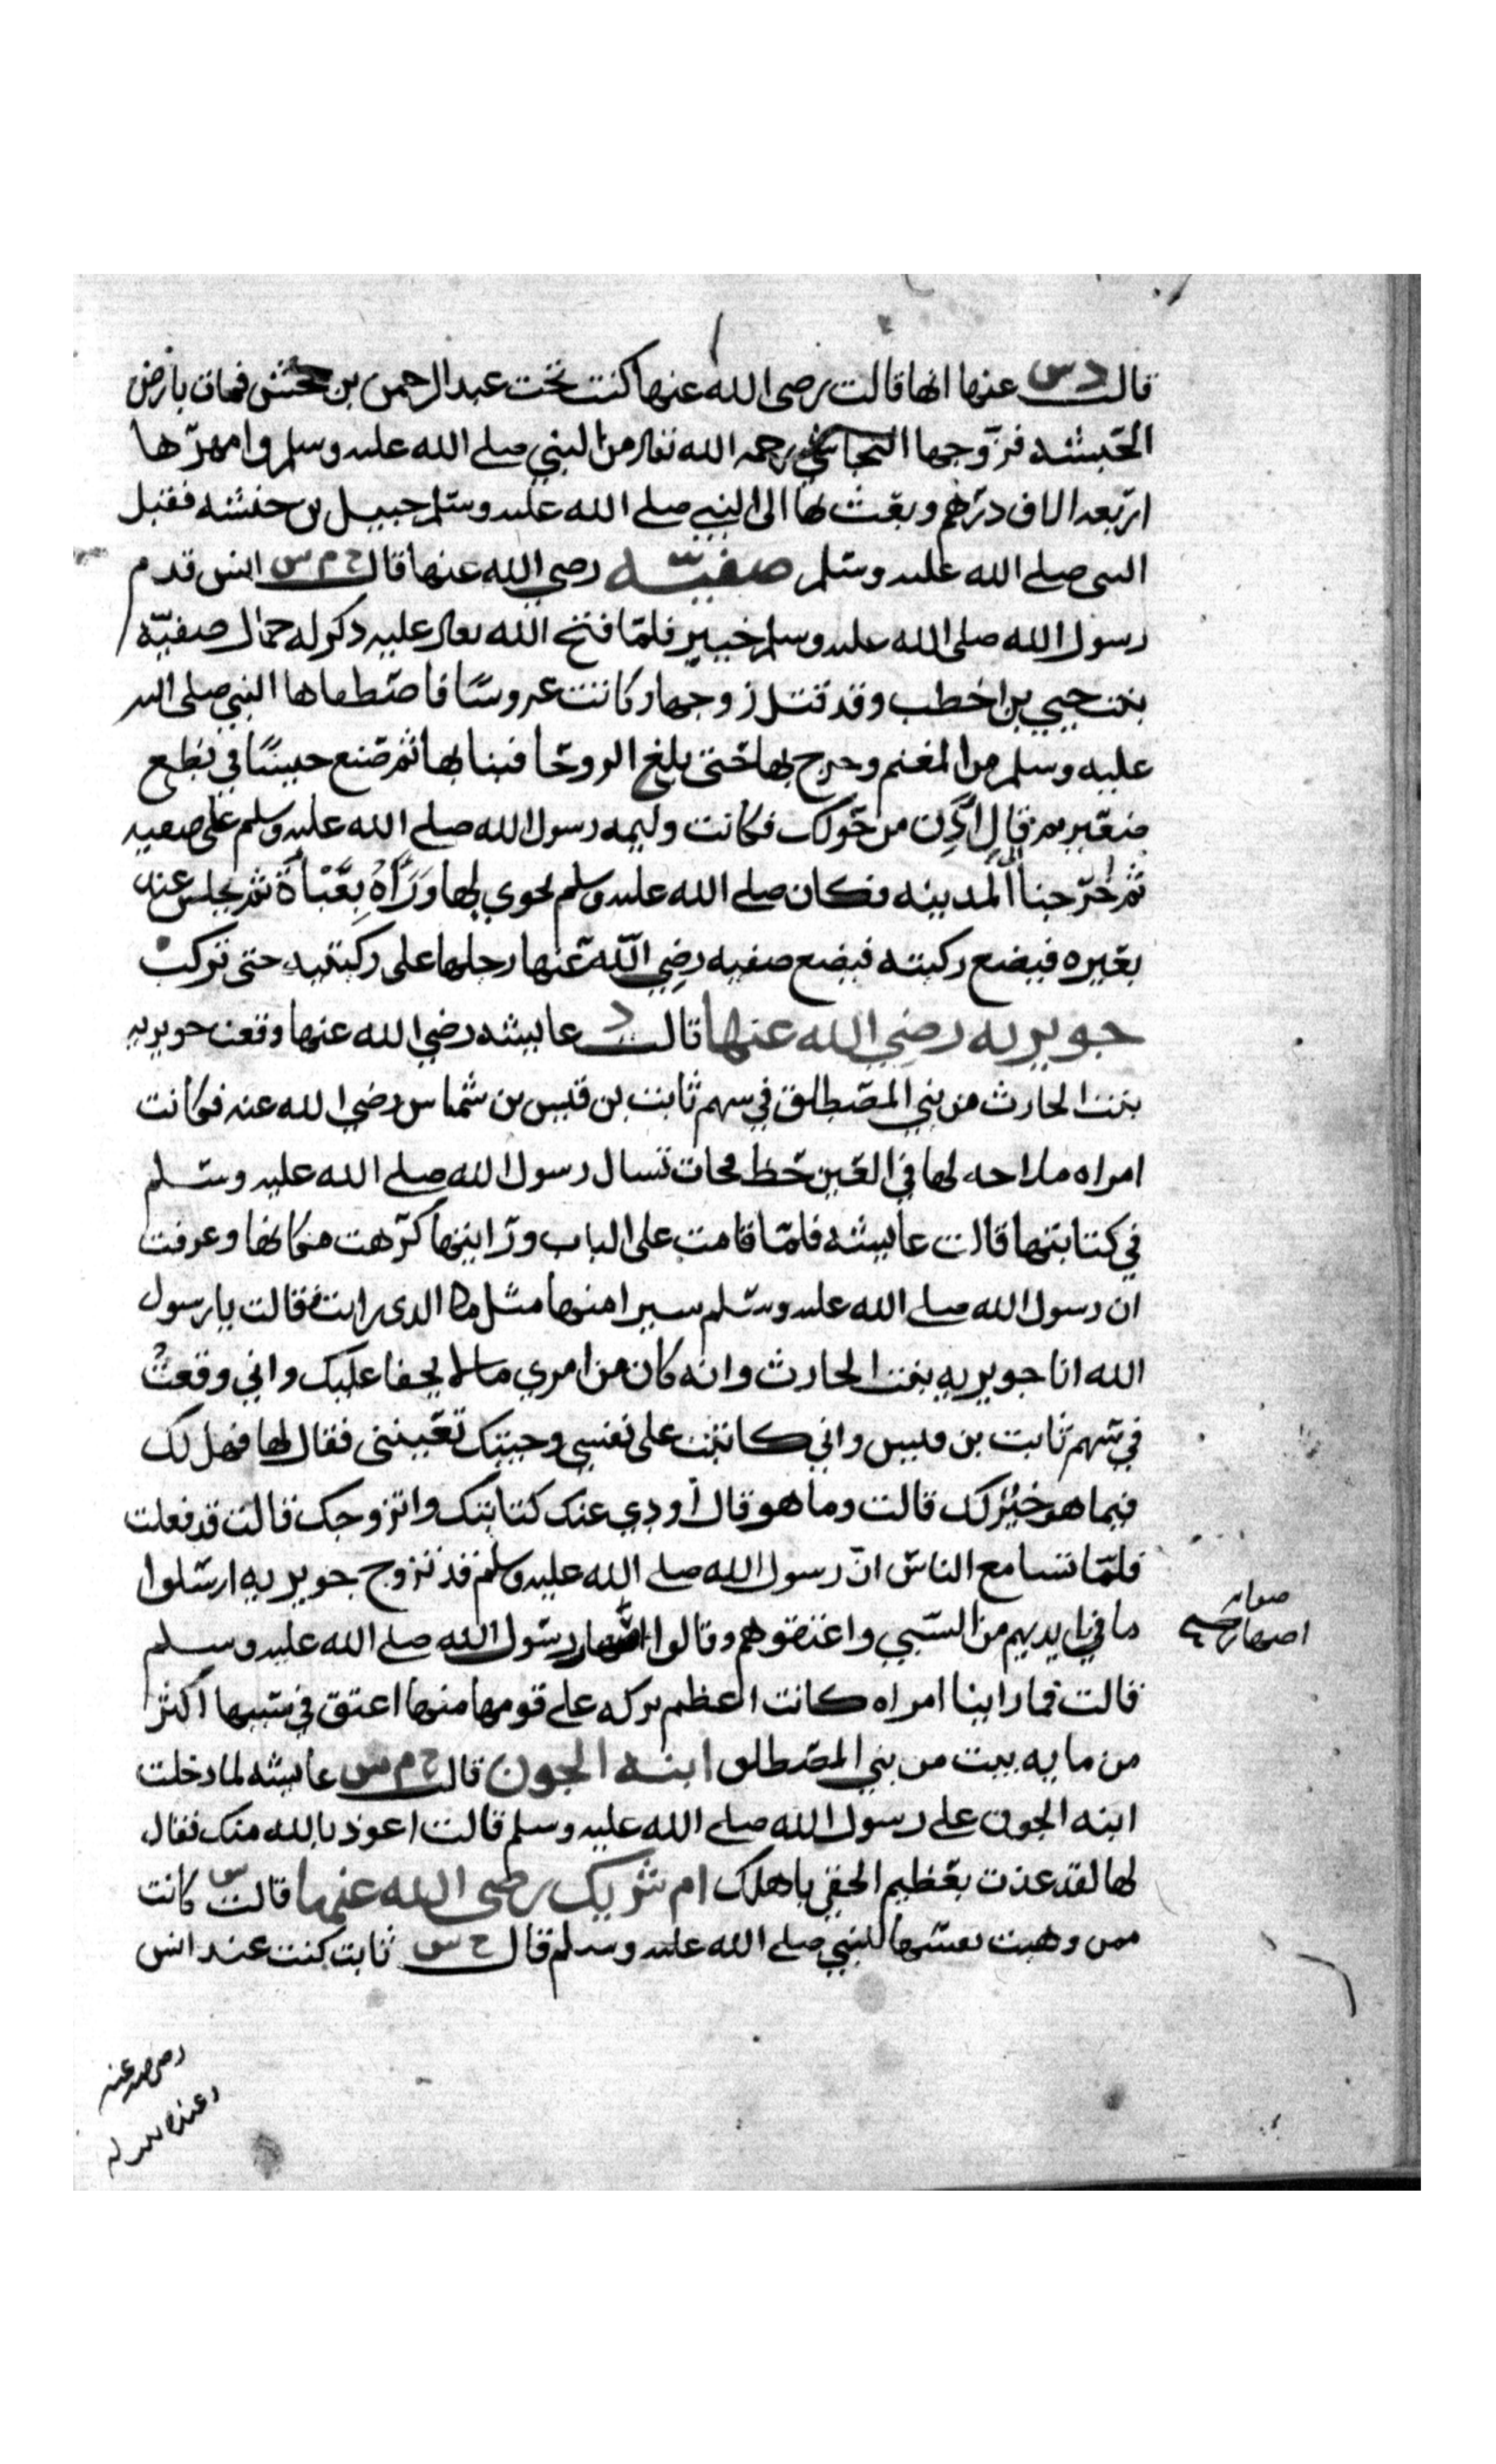 قالت د س عنها انها قالت رضى الله عنها كنت تحت عبد الرحمن بن جحش فمات بارض
الحبشه فزوجها النجاشي رحمه الله تعالى من النبي صلى الله عليه وسلم وامهرها
اربعه الاف درهم وبعث بها الى النبي صلى الله عليه وسلم حبيل بن حنشه فقبل
النبى صلى الله عليه وسلم صفيّه رضي الله عنها قال خ م س انس قدم
رسول الله صلى الله عليه وسلم خيبر فلمّا فتح الله تعالى عليه ذكر له جمال صفيّه
بنت حيي بن اخطب وقد قتل زوجها وكانت عروسًا فاصطفاها النبي صلى الله
عليه وسلم من المغنم وخرج بها حتى بلغ الروحا فبنا بها ثم صنع حيسًا في نطع
صغير ثم قال آذن من حولك فكانت وليمه رسول الله صلى الله عليه وسلم على صفيه
ثم خرجنا الى المدينه فكان صلى الله عليه وسلم يحوي لها وَرَاَهُ بِعَبَاَة ثم يجلس عند
بعيره فيضع ركبته فيضع صفيه رضي الله عنها رجلها على ركبتيه حتى تركب
جويريه رضي الله عنها قالت د عايشه رضي الله عنها وقعت جويريه
بنت الحارث من بني المصطلق في سهم ثابت بن قيس بن شماس رضي الله عنه فكانت
امراه ملاحه لها في العين حظ فجات تسال رسول الله صلى الله عليه وسلم
في كتابتها قالت عايشه فلمّا قامت على الباب ورايتها كرهت مكانها وعرفت
ان رسول الله صلى الله عليه وسلم سيرا منها مثل ما الدى رايت فقالت يا رسول
الله انا جويريه بنت الحارث وانه كان من امري ما لا يخفا عليك واني وقعتُ
في سهم ثابت بن قيس واني كاتبت على نفسي وجيتك تعينني فقال لها فهل لك
فيما هو خيْرٌ لك قالت وما هو قال أودي عنك كتابتك واتزوجك قالت قد فعلت
فلمّا تسامع الناس انّ رسول الله صلى الله عليه وسلم قد تزوج جويريه ارسلوا
ما في ايديهم من السبي واعتقوهم وقالوا اصهار رسول الله صلى الله عليه وسلم
صوابه
اصهار صح
قالت فما راينا امراه كانت اعظم بركه على قومها منها اعتق في سببها اكثر
من مايه بيت من بني المصطلق ابنه الجون قالت خ م س عايشه لما دخلت
ابنه الجون على رسول الله صلى الله عليه وسلم قالت اعوذ بالله منك فقال
لها لقد عذت بعظيم الحقي باهلك ام شريك رضى الله عنها قالت س كانت
ممن وهبت نفسها للنبي صلى الله عليه وسلم قال خ س ثابت كنت عند انس
رضى الله عنه
وعنده